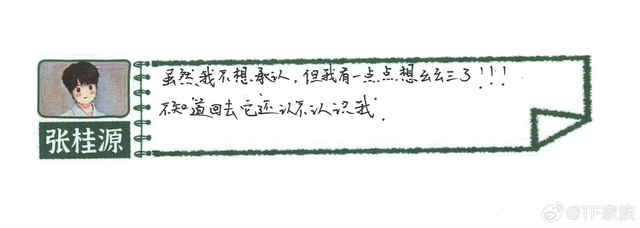 虽然我不想承认，但我有一点点想幺幺三了！！！
不知道回去它还认不认识我.
张桂源
@TF家族